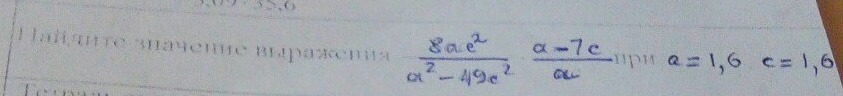 Найдите значение выражения 8ac²/(a² − 49c²) · (a − 7c)/a при a = 1,6 c = 1,6